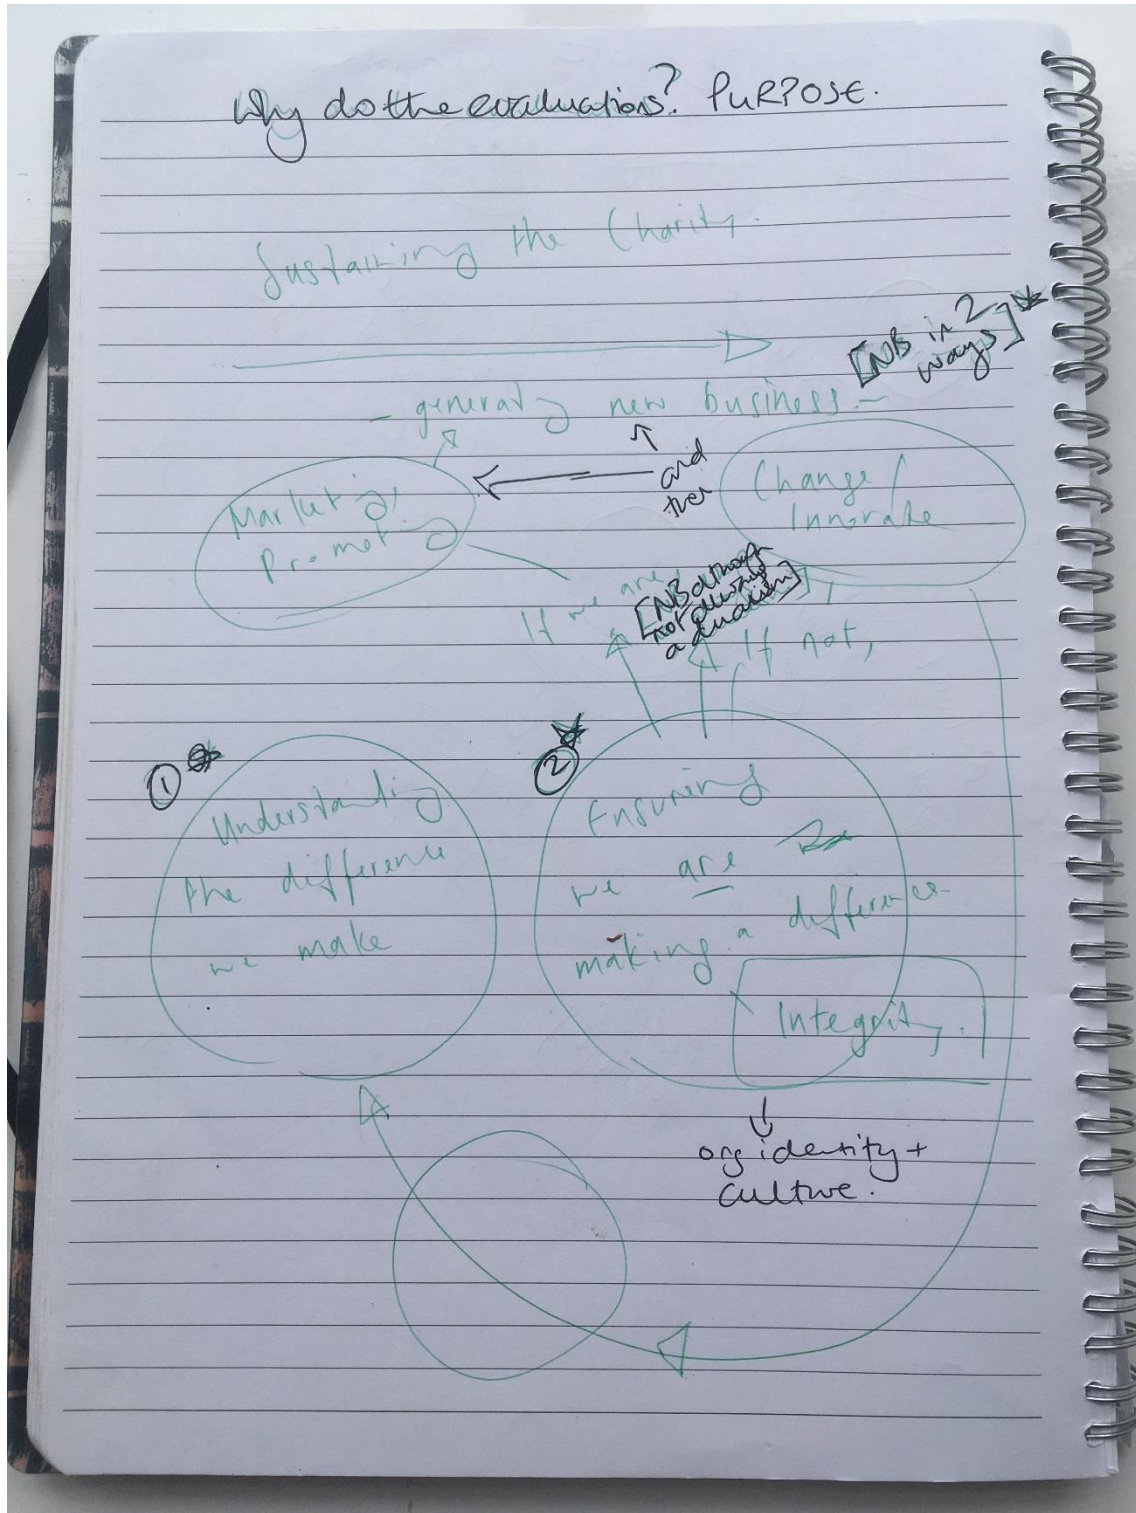 Why do the evaluations? PURPOSE.
Sustaining the Charity.
[NB in 2
ways]
- generating new business. -
and
then
Marketing,
Promoting
Change /
Innovate
If we are,
[NB although
not
a dualism]
If not,
1
Understanding
the difference
we make
2
Ensuring
we are
making a difference
Integrity.
org identity +
culture.